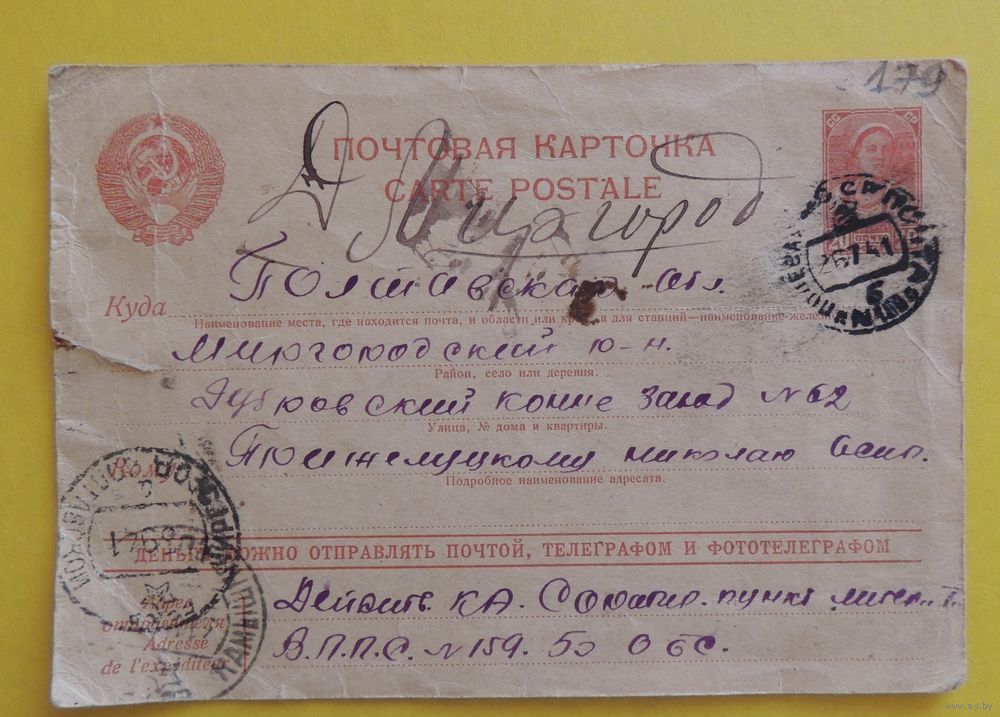 179
ПОЧТОВАЯ КАРТОЧКА
CARTE POSTALE
СС СР
20
Миргород
Полтавская обл.
Куда
Наименование места, где находится почта, и области или края, для станций—наименование
Миргородский р-н.
Район, село или деревня.
Дубровский конне завод №62
Улица, № дома и квартиры.
Кому
Прижелуцкому николаю Осип.
Подробное наименование адресата.
ДЕНЬГИ МОЖНО ОТПРАВЛЯТЬ ПОЧТОЙ, ТЕЛЕГРАФОМ И ФОТОТЕЛЕГРАФОМ
Адрес
отправителя
Adresse
de l'expéditeur
Действ. К.А. пункт литер
В.П.П.С. №159. 50 ОБС.
26741
www.ay.by